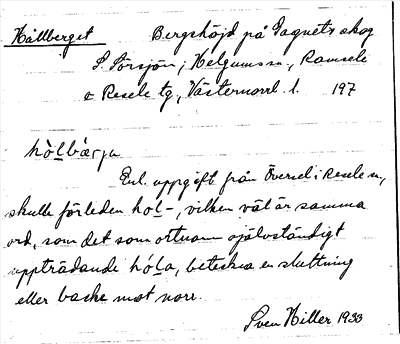 Hållberget Bergshöjd på Gagnets skog
S. Sörsjön, i Helgums sn, Ramsele
o Resele tg, Västernorrl. l. 197
hòlbærja
Enl. uppgift från Översel i Resele sn,
skulle förleden hol-, vilken väl är samma
ord, som det som ortnamn självständigt
uppträdande hóla, beteckna en sluttning
eller backe mot norr.
Sven Hiller 1933